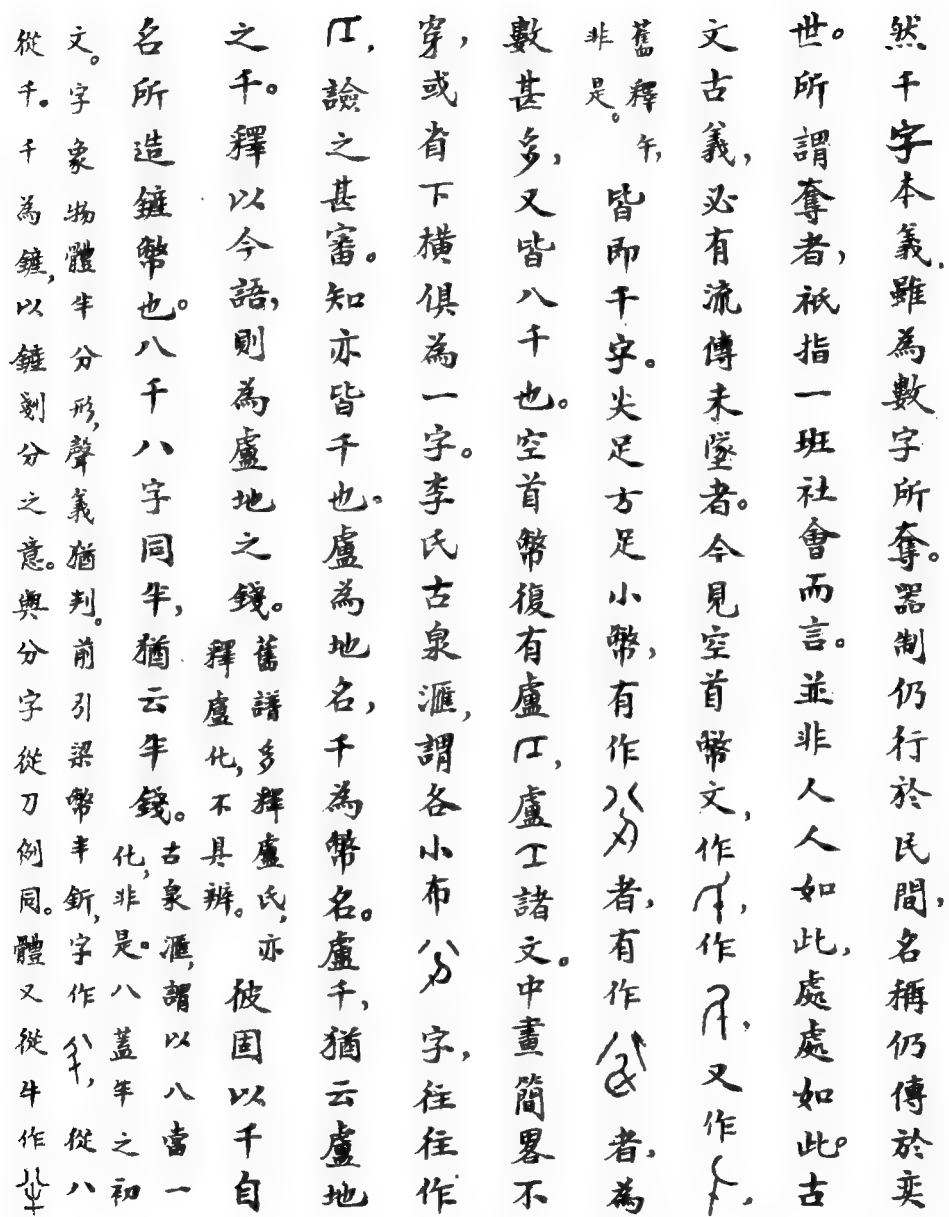 然千字本義,雖為數字所奪。器制仍行於民間,名稱仍傳於奕
世。所謂奪者,祇指一班社會而言。並非人人如此,處處如此。古
文古義,必有流傳未墜者。今見空首幣文,作,作,又作,
舊釋午,
非是。
皆即千字。尖足方足小幣,有作者,有作者,為
數甚多,又皆八千也。空首幣復有盧,盧諸文。中畫簡畧不
穿,或省下橫俱為一字。李氏古泉滙,謂各小布字,往往作
,諗之甚審。知亦皆千也。盧為地名,千為幣名。盧千,猶云盧地
之千。釋以今語,則為盧地之錢。
舊譜多釋盧氏,亦
釋盧化,不具辨。
彼固以千自
名所造鏟幣也。八千八字同半,猶云半錢。
古泉滙,謂以八當一
化,非是。八蓋半之初
文。字象物體半分形,聲義猶判。前引梁幣半釿,字作,從八
從千。千為鏟,以鏟剗分之意。與分字從刀例同。體又從牛作